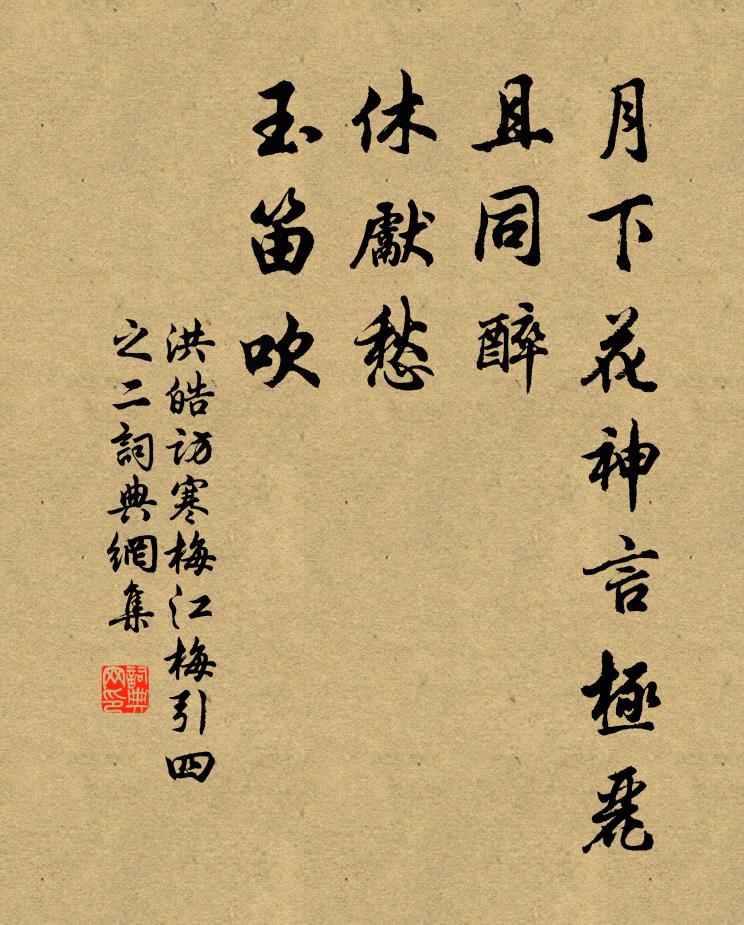 月下花神言極麗
且同醉
休獻愁
玉笛吹
洪皓訪寒梅江梅引四
之二詞典網集
詞典网印